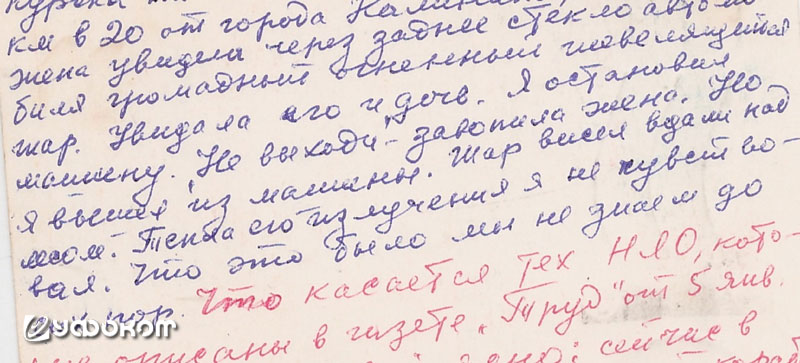 км в 20 от города Калинин,
жена увидела через заднее стекло автомо
биля громадный огненный шевелящийся
шар. Увидала его и дочь. Я остановил
машину. "Не выходи"- завопила жена. Но
я вышел из машины. Шар висел вдали над
лесом. Тепла его излучения я не чувство-
вал. Что это было мы не знаем до
пор. Что касается тех НЛО, кото-
описаны в газете "Труд" от 5 янв.
сейчас в
Уфоком